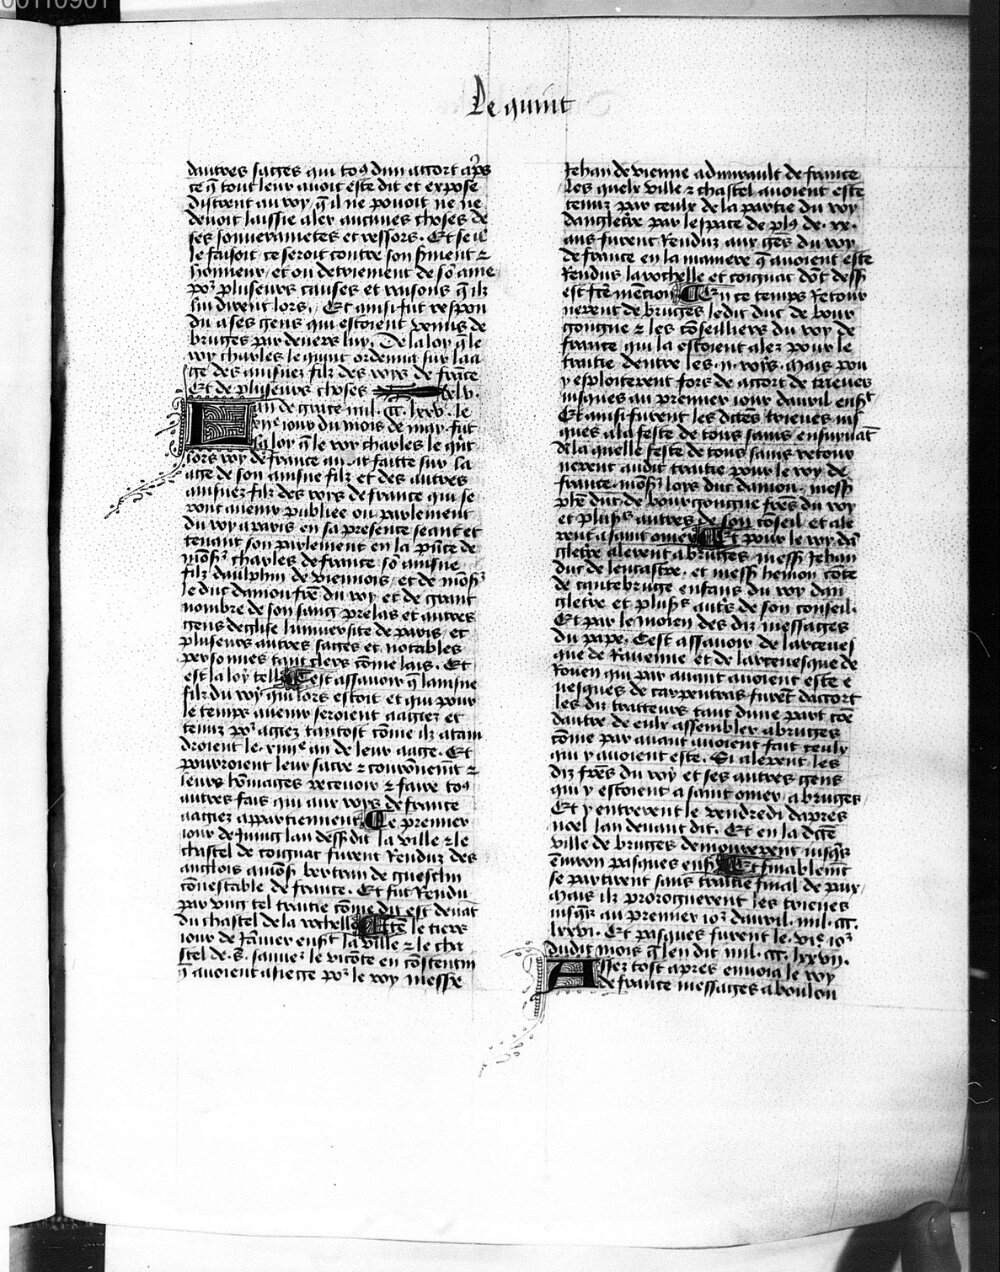 00110901
Le quint
dautres sages qui tous dun acort apres
ce q̃ tout leur auoit este dit et expose
distrent au roy q̃ il ne pouoit ne ne
deuoit laissie aler aucunes choses de
ses souuerainetes et ressors. Et se il
le faisoit ce seroit contre son serment ⁊
honneur, et ou detriement de sõ ame
por plusieurs causes et raisons q̃ ilz
lui dirent lors. Et ainsi fut respon
du a ses gens qui estoient venus de
bruges par deuers luy. De la loy q̃ le
roy charles le quint ordenna sur laa
ge des ainsnez filz des roys de frãce
Et de plusieurs choses xlv.
Lan de grace mil. ccc. lxxv. le
iour du mois de may. fut
la loy q̃ le roy charles le qñt
lors roy de france auoit faitte sur la
age de son ainsne filz et des autres
ainsnez filz des roys de france qui se
ront auenir publiee ou parlement
du roy a paris en sa presence seant et
tenant son parlement en la pñce de
monsr charles de france sõ ainsne
filz daulphin de viennois, et de mõsr
le duc daniou fre du roy et de grant
nombre de son sang prelas et autres
gens deglise luniuersite de paris, et
plusieurs autres sages et notables
personnes tant clers cõme lais. Et
est la loy telle Cest assauoir q̃ lainsne
filz du roy qui lors estoit et qui pour
le temps auenir seroient aagiez et
tenuz por agiez tantost cõme ilz atain
droient le xiiiie an de leur aage. Et
pourroient leur sacre ⁊ couronnemt ⁊
leurs hõmages receuoir ⁊ faire tous
autres fais qui aux roys de france
aagiez appartiennent Le premier
iour de Juing lan dess dit la ville ⁊ le
chastel de coignac furent Renduz des
anglois a mõsr bertran de guesclin
cõnestable de france. Et fut Rendu
par vng tel traitie cõme dit est deuãt
du chastel de la rochelle Itẽ le tiers
iour de Januier enst la ville ⁊ le cha
stel de .S. sauueur le viconte en cõstentin
q̃ auoient asiege por le roy messr
Jehan de vienne admirault de france
Les quelx ville ⁊ chastel auoient este
tenuz par ceulx de la partie du roy
dangletre par lespace de plus de .xx.
ans furent Renduz aux gẽs du roy
de france en la maniere q̃ auoient este
Rendus la rochelle et coignac dõt dess
est fcẽ mencion En ce temps Retour
nerent de bruges ledit duc de bour
gongne ⁊ les cõseilliers du roy de
france qui la estoient alez pour le
traitie dentre les .ii. roys. Mais pou
y esploiterent fors de accort de trieues
iusques au premier iour dauril enst
Et ainsi furent les dictes trieues iuf
ques a la feste de tous sains ensuyuãt
De la quelle feste de tous sains retour
nerent audit traitie pour le roy de
france. mõsr loys duc daniou. messr
phẽ duc de bourgongne freres du roy
et plusrs autres de son cõseil et ale
rent a saint omer Et pour le roy dã
gletre alerent a bruges. messr Jehan
duc de lencastre. et messr hemon cõte
de cantebruge enfans du roy dan
gletre et plusrs autrs de son conseil.
Et par le moien des diz messages
du pape. Cest assauoir de larceues
que de Rauenne et de larceuesque de
Rouen qui par auant auoient este e
uesques de carpentras furẽt daccort
les du traitteurs tant dune part cõe
dautre de eulx assembler a bruges
cõme par auant auoient fait ceulx
qui y auoient este. Si alerent les
diz freres du roy et ses autres gens
qui y estoient a saint omer, a bruges
Et y entrerent le vendredi dapres
noel lan deuant dit. Et en la dcẽ
ville de bruges demourerent iusqz
enuiron pasques ens Et finablemt
se partirent sans traitie final de paix
Mais ilz proroguerent les trieues
iusqz au premier ior dauril. mil. ccc.
lxxvi. Et pasques furent le .vie. ior
dudit mois q̃ len dit mil. ccc. lxxvii.
Assez tost apres enuoia le roy
de france messages a boulon